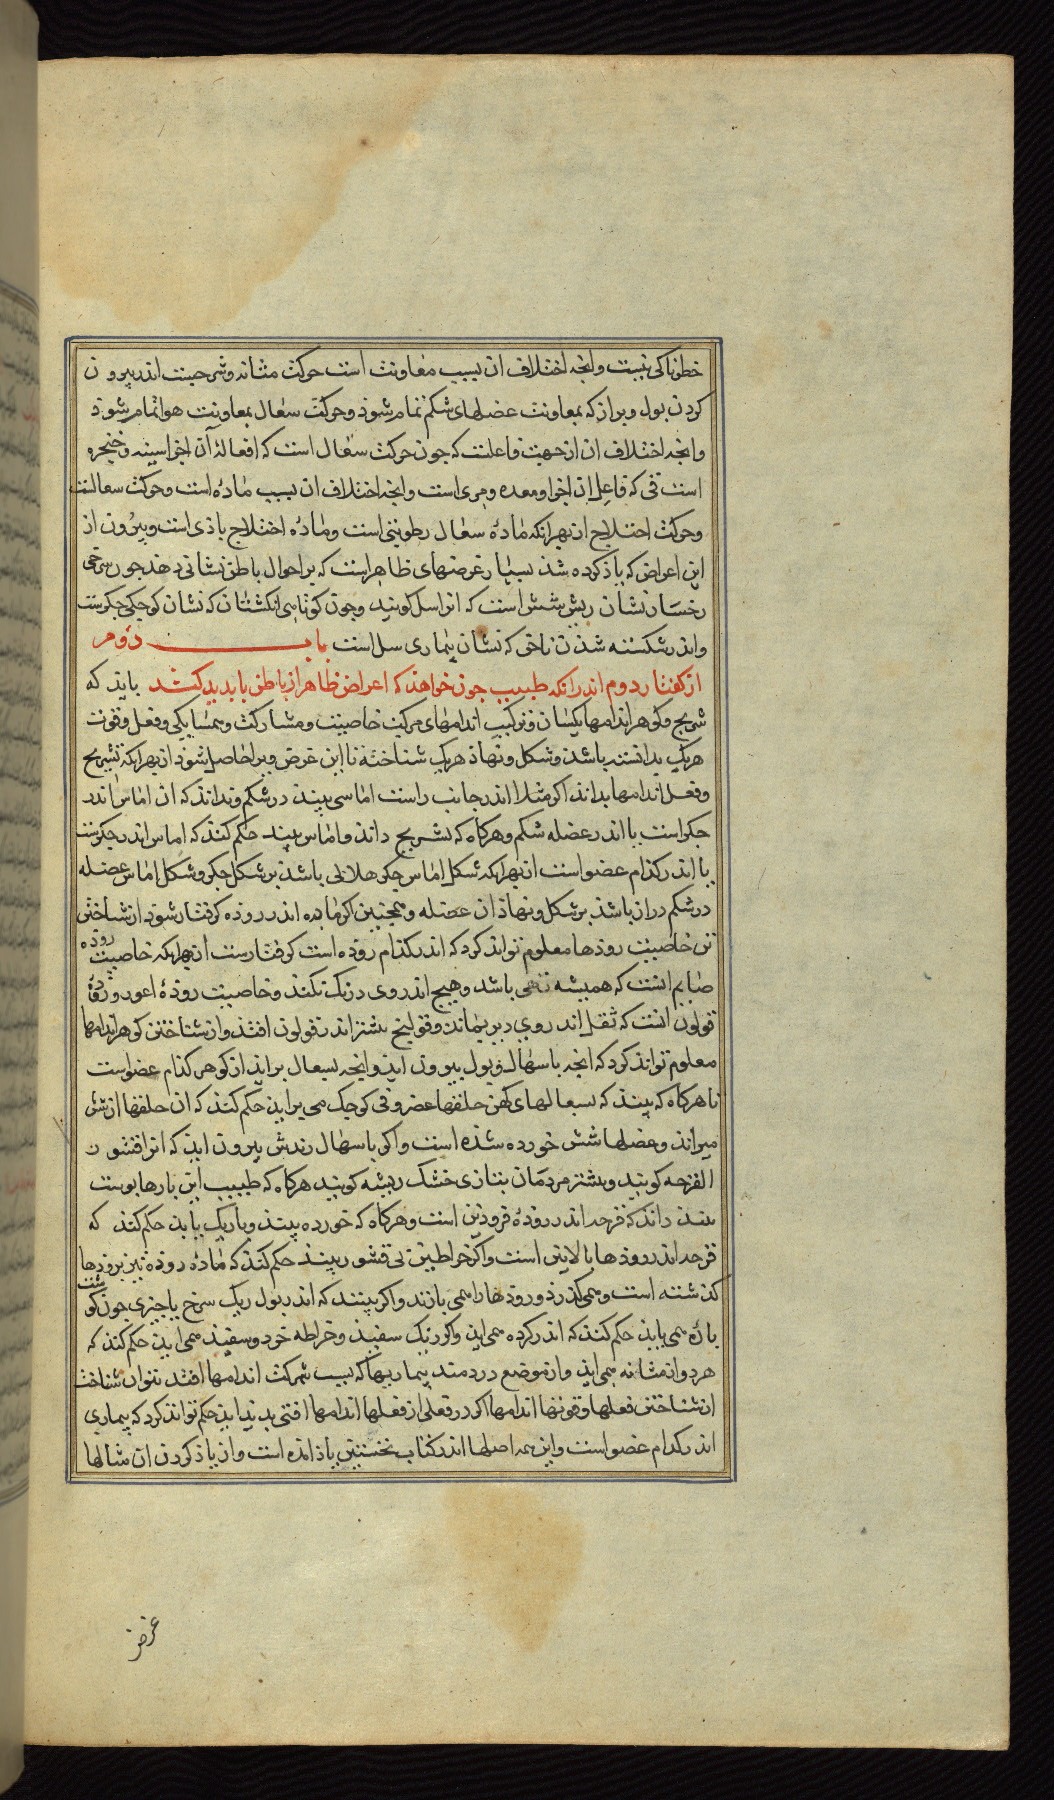 خطرناکی نیست وانجه اختلاف ان بسبب معاونت است حرکت مثانه وشرجست اندر بیرون
کردن بول وبراز که بمعاونت عضلهای شکم تمام شود وحرکت سعال بمعاونت هوا تمام شود
وانجه اختلاف ان از جهت فاعلست که جون حرکت سعال است که افعالهٔ آن اجزا سینه وحنجره
است قی که فاعل ان اجزا ومعده ومری است وانجه اختلاف ان بسبب ماده است وحرکت سعالست
وحرکت اختلاج از بهرانکه مادهٔ سعال رطوبتی است ومادهٔ اختلاج باذی است وبیرون از
این اعراض که یاذ کرده شد بسیار عرضهای ظاهر است که بر احوال باطن نشانی دهد جون سرخی
رخسار نشان ریش شش است که انرا سل کویند وجون کوتاهی انکشتان که نشان کوجکی جکرست
واندر شکسته شدن ناخن که نشان بیماری سل است باب دوم
از کفتار دوم اندر انکه طبیب جون خواهد که اعراض ظاهر از باطن بادید کند باید که
تشریح وکوهر اندامها یکسان وترکیب اندامهای مرکب خاصیت ومشارکت وهمسایکی وفعل وقوت
هریک بدانسته باشد وشکل ونهاد هریک شناخته تا این غرض ویرا حاصل شود از بهرانکه تشریح
وفعل اندامها بداند اکر مثلا اندر جانب راست اماسی بیند در شکم وبداند که ان اماس اندر
جکر است یا اندر عضله شکم وهرکاه که تشریح داند واماس بیند حکم کند که اماس اندر جکرست
یا اندر کدام عضو است از بهرانکه شکل اماس جکر هلالی باشد بر شکل جکر وشکل اماس عضله
در شکم دران باشد بر شکل ونهاد ان عضله وهمجنین اکر ماده اندر روده کرفتار شود از شناختن
تن خاصیت رودها معلوم تواند کرد که اندر کدام روده است کرفتارست از بهرانکه خاصیت روده
صایم انست که همیشه تهی باشد وهیج اندر وی درنک نکند وخاصیت رودهٔ اعور ورودهٔ
قولون انست که ثقل اندر وی دیر بماند وقولنج بیشتر اندر قولون افتد واز شناختن کوهر اندامها
معلوم تواند کرد که انجه باسهال وبول بیرون اید وانجه بسعال براید از کوهر کدام عضو است
تا هرکاه که بیند که بسعالهای کهن حلقها غضروفی کوجک می براید حکم کند که ان حلقها از شش
میراند وعضلها شش خورده شده است واکر باسهال رندش بیرون اید که انرا قشور
القرحه کویند وبیشتر مردمان بتازی خشک ریشه کویند هرکاه که طبیب این بارها بوست
بیند داند که قرحه اندر رودهٔ فرودین است وهرکاه که خورده بیند وباریک یابد حکم کند که
قرحه اندر رودها بالاین است واکر خراطین بی قشور بیند حکم کند که مادهٔ روده تیز برودها
کذشته است وهمی کذرد ورودها را همی بازند واکر بیند که اندر بول ریک سرخ یا جیزی جون کوشت
پاره همی یابد حکم کند که اندر کرده همی اید واکر ریک سفید وخراطه خرد وسفید همی اید حکم کند که
هردو از مثانه همی اید واز موضع دردمند بیماریها که بسبب شرکت اندامها افتد بتوان شناخت
از شناختن فعلها وقوتها اندامها اکر در فعلی از فعلها اندامها افتی بدید اید حکم تواند کرد که بیماری
اندر کدام عضو است واین همه اصلها اندر کتاب نخستین یاذ امده است واز یاذ کردن ان مثالها
غرض